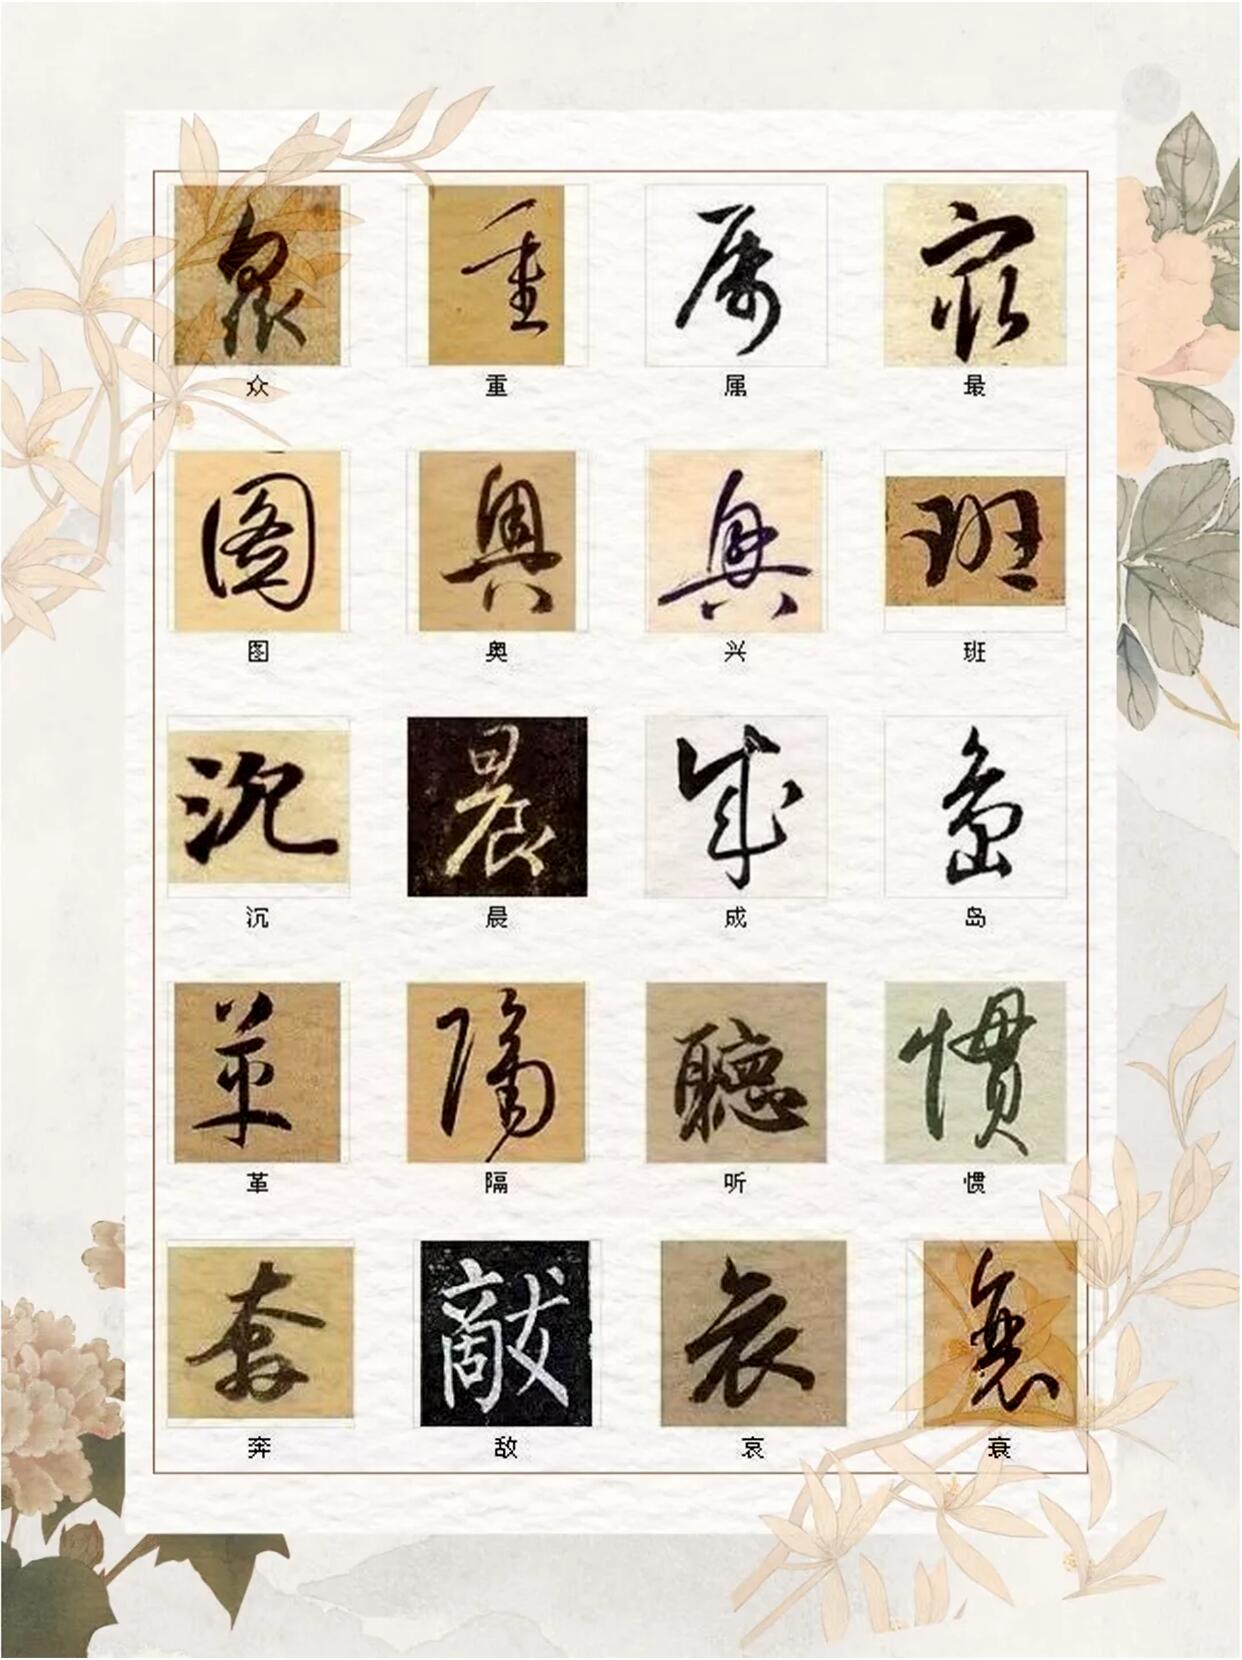 众 重 属 最
图 奥 兴 班
沉 晨 成 岛
革 隔 听 惯
奔 敌 哀 衰